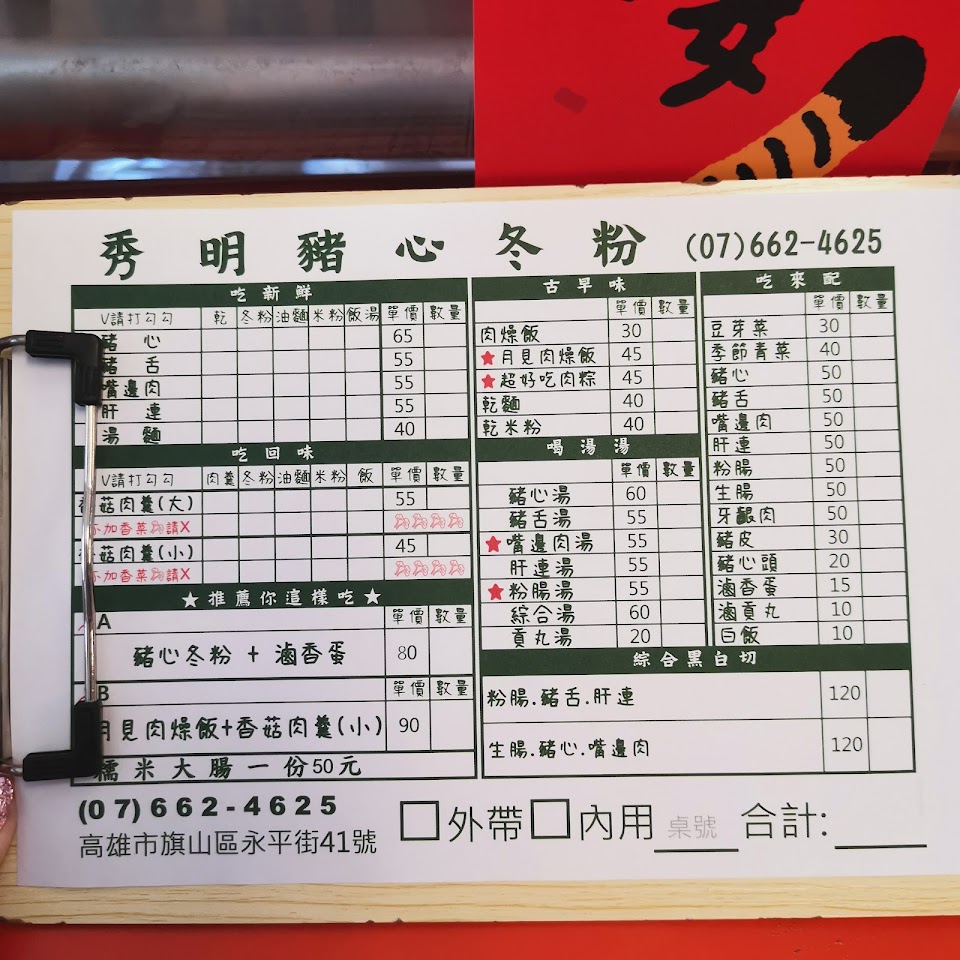 秀明豬心冬粉 (07)662-4625
吃新鮮
V請打勾勾 乾 冬粉 油麵 米粉 飯湯 單價 數量
豬心 65
豬舌 55
嘴邊肉 55
肝連 55
湯麵 40
吃回味
V請打勾勾 肉羹 冬粉 油麵 米粉 飯 單價 數量
香菇肉羹(大) 55
不加香菜請X
香菇肉羹(小) 45
不加香菜請X
★推薦你這樣吃★
A 單價 數量
豬心冬粉 + 滷香蛋 80
B 單價 數量
月見肉燥飯+香菇肉羹(小) 90
糯米大腸一份50元
古早味
單價 數量
肉燥飯 30
★月見肉燥飯 45
★超好吃肉粽 45
乾麵 40
乾米粉 40
喝湯湯
單價 數量
豬心湯 60
豬舌湯 55
★嘴邊肉湯 55
肝連湯 55
★粉腸湯 55
綜合湯 60
貢丸湯 20
吃來配
單價 數量
豆芽菜 30
季節青菜 40
豬心 50
豬舌 50
嘴邊肉 50
肝連 50
粉腸 50
生腸 50
牙齦肉 50
豬皮 30
豬心頭 20
滷香蛋 15
滷貢丸 10
白飯 10
綜合黑白切
粉腸.豬舌.肝連 120
生腸.豬心.嘴邊肉 120
(07)662-4625
高雄市旗山區永平街41號
□外帶□內用 桌號 合計: